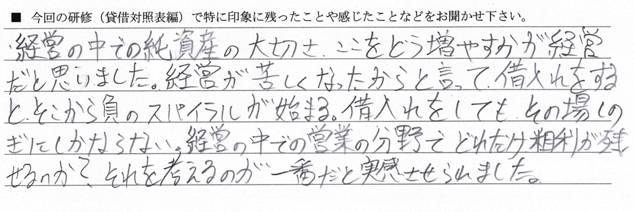 ■ 今回の研修(貸借対照表編)で特に印象に残ったことや感じたことなどをお聞かせ下さい。
・経営の中での純資産の大切さ、ここをどう増やすかが経営
だと思いました。経営が苦しくなったからと言って、借入れをする
と、そこから負のスパイラルが始まる。借入れをしても、その場しの
ぎにしかならない。経営の中での営業の分野で どれだけ粗利が残
せるのか?、それを考えるのが 一番だと実感させられました。